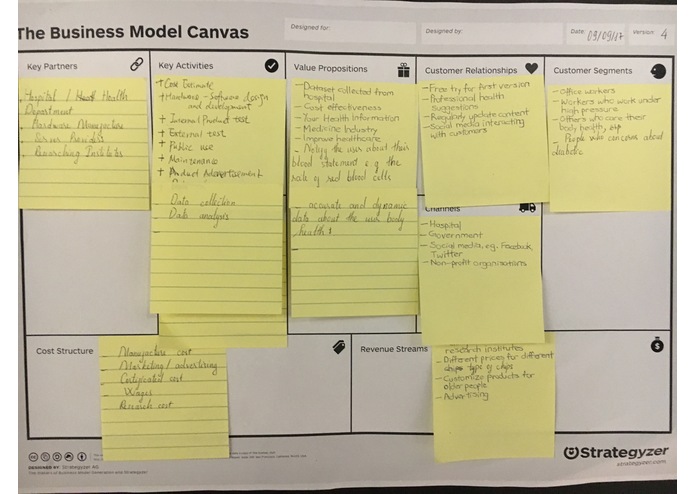 The Business Model Canvas
Designed for:
Designed by:
Date: 09/09/17
Version: 4
Key Partners
- Hospital / Health
Department
- Hardware Manufacture
- Researching Institutes
Key Activities
+ Cost Estimate
+ Hardware - Software design
and development
+ Internal Product test
+ External test
+ Public use
+ Maintenance
+ Product Advertisement
Data collection
Data analysis
Value Propositions
- Dataset collected from
hospital
- Cost effectiveness
- Your Health Information
- Medicine Industry
- Improve healthcare
- Notify the user about their
blood statement e.g the
rate of red blood cells
- accurate and dynamic
data about the user body
health
Customer Relationships
- Free try for first version
- Professional health
suggestions
- Regularly update content
- Social media interacting
with customers
Channels
- Hospital
- Government
- Social media, eg. Facebook,
Twitter
- Non-profit organisations
Customer Segments
- office workers
- Workers who work under
high pressure
- Others who care their
body health, esp
- People who concerns about
diabetic
Cost Structure
Manufacture cost
- Marketing / advertising
Certificated cost
- Wages
Research cost
Revenue Streams
research institutes
- Different prices for different
type of chips
- Customize products for
older people
- Advertising
DESIGNED BY: Strategyzer AG
The makers of Business Model Generation and Strategyzer
Strategyzer
strategyzer.com